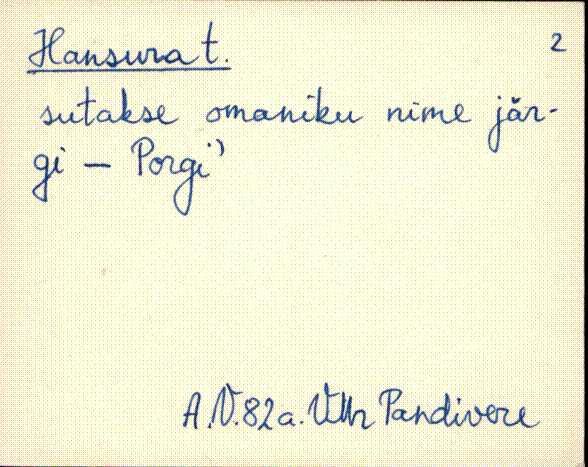 Hansura t. 2
sutakse omaniku nime jär-
gi – Porgi’
A.V. 82a. VMr Pandivere